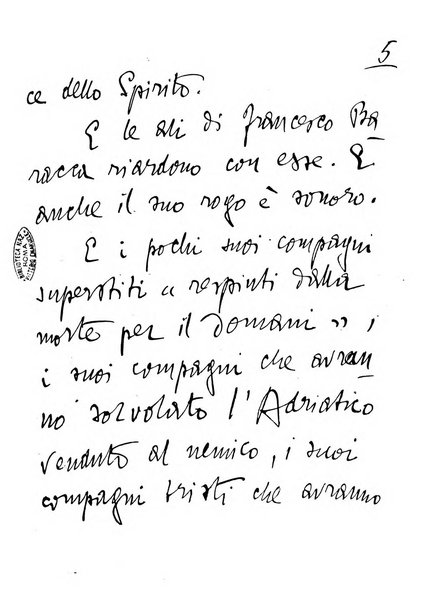 5
ce dello Spirito.
E le ali di Francesco Ba
racca riardono con esse. E
anche il suo rogo è sonoro.
E i pochi suoi compagni
superstiti « respinti dalla
morte per il domani »,
i suoi compagni che avran
no sorvolato l'Adriatico
venduto al nemico, i suoi
compagni tristi che avranno